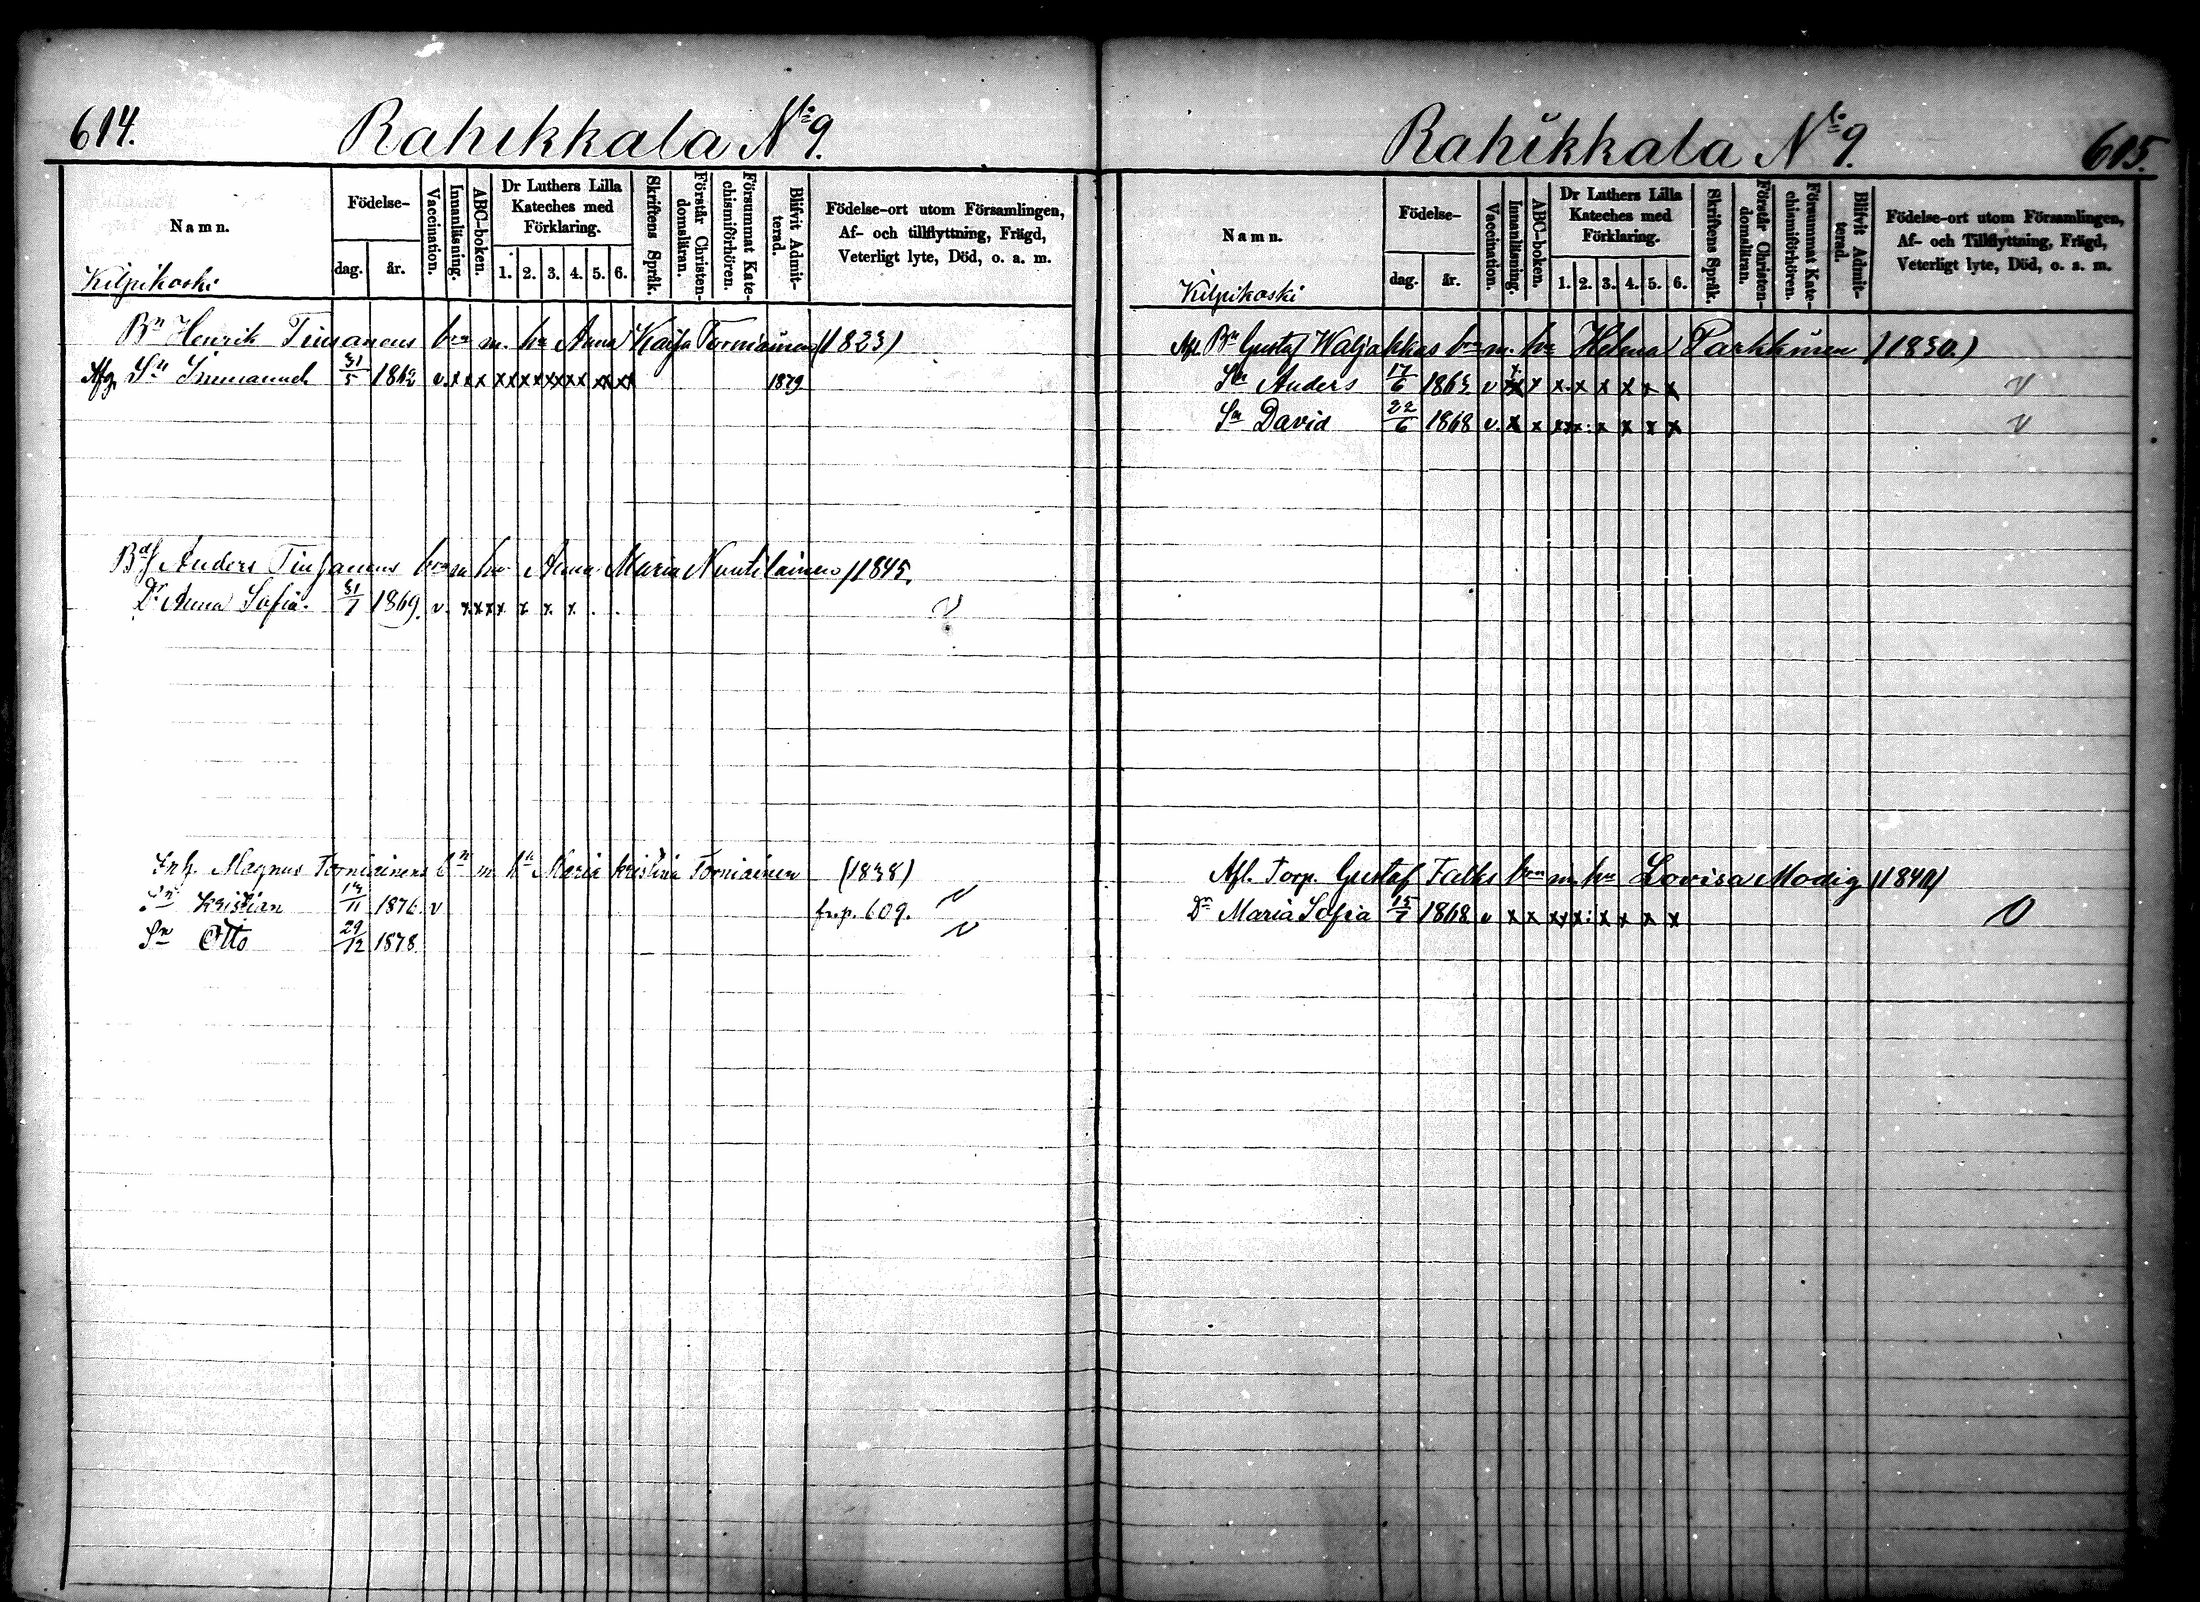 614.
Rahikkala No 9.
Namn.
Födelse-
dag.
år.
Vaccination.
Innanläsning.
ABC-boken.
Dr Luthers Lilla Kateches med Förklaring.
1. 2. 3. 4. 5. 6.
Skriftens Språk.
Förstår Christendomsläran.
Försummat Katechismiförhören.
Blifvit Admitterad.
Födelse-ort utom Församlingen,
Af- och tillflyttning, Frägd,
Veterligt lyte, Död, o. a. m.
Kilpikoski
Bn Henrik Tiusanens bn m. hu Anna Kaisa Torniainen (1823)
Afg. Sn Immanuel 31/5 1862 v. x x x x x x x x x x x x x x 1879
Anders Tiusanens bn m hu Anna Maria Nuutilainen (1845.
Dr Anna Sofia. 31/7 1869. v. x x x x x x x . .
Inh. Magnus Torniainens bn m hu Maria Kristina Torniainen (1838)
Sn Kristian 13/11 1876 v fr. p. 609. v
Sn Otto 29/12 1878. v
Rahikkala No 9.
615.
Namn.
Födelse-
dag.
år.
Vaccination.
Innanläsning.
ABC-boken.
Dr Luthers Lilla Kateches med Förklaring.
1. 2. 3. 4. 5. 6.
Skriftens Språk.
Förstår Christendomsläran.
Försummat Katechismiförhören.
Blifvit Admitterad.
Födelse-ort utom Församlingen,
Af- och Tillflyttning, Frägd,
Veterligt lyte, Död, o. a. m.
Kilpikoski
Afl. Bn Gustaf Waljakkas bn m. hu Helena Parkkinen (1830.)
Sn Anders 17/6 1863 v x x x x x x x x v
Sn David 22/6 1868 v. x x x x x : x x x x v
Afl. Torp. Gustaf Falks bn m. hu Lovisa Modig (1840)
Dr Maria Sofia 15/7 1868 v x x x x x : x x x x